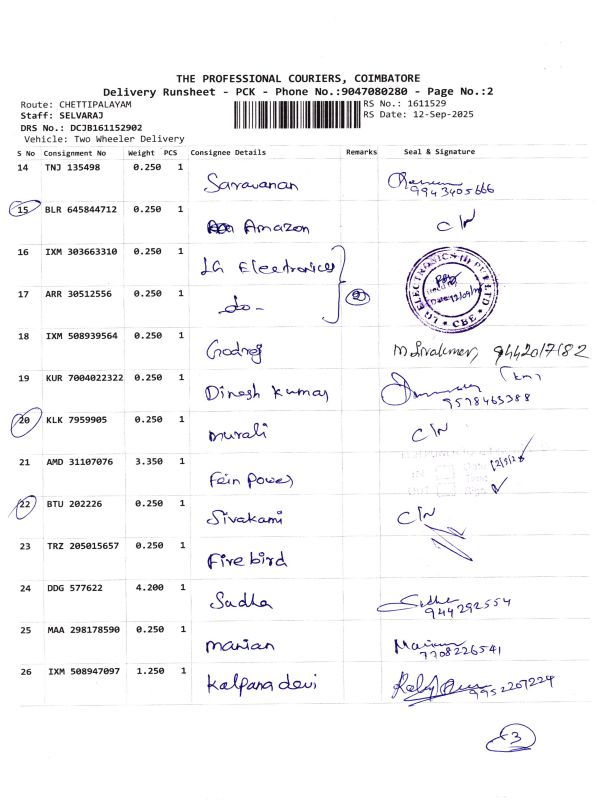 THE PROFESSIONAL COURIERS, COIMBATORE
Delivery Runsheet - PCK - Phone No.:9047080280 - Page No.:2
Route: CHETTIPALAYAM RS No.: 1611529
Staff: SELVARAJ RS Date: 12-Sep-2025
DRS No.: DCJB161152902
Vehicle: Two Wheeler Delivery
S No Consignment No Weight PCS Consignee Details Remarks Seal & Signature
14 TNJ 135498 0.250 1 Saravanan
9943405666
15 BLR 645844712 0.250 1 Amazon C/N
16 IXM 303663310 0.250 1 LG Electronics
17 ARR 30512556 0.250 1 -do- 2
LG ELECTRONICS (I) PVT LTD CBE
18 IXM 508939564 0.250 1 Godrej M Sivakumar, 9442017182
19 KUR 7004022322 0.250 1 Dinesh Kumar
9578463388
20 KLK 7959905 0.250 1 murali C/N
21 AMD 31107076 3.350 1 Fein Power
22 BTU 202226 0.250 1 Sivakami C/N
23 TRZ 205015657 0.250 1 Fire bird
24 DDG 577622 4.200 1 Sudha Sudha
944292554
25 MAA 298178590 0.250 1 manian Manian
7708226541
26 IXM 508947097 1.250 1 Kalpana devi
9952207224
-3